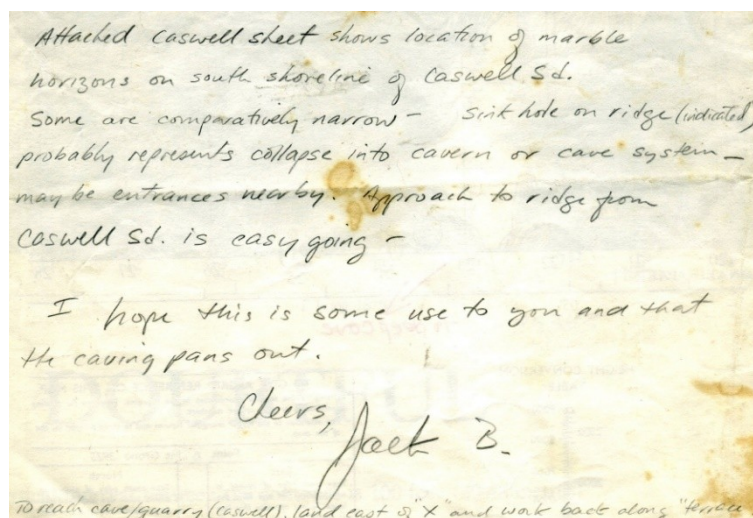 Attached Caswell sheet shows location of marble
horizons on south shoreline of Caswell Sd.
Some are comparatively narrow - Sink hole on ridge (indicated)
probably represents collapse into cavern or cave system -
may be entrances nearby. Approach to ridge from
Caswell Sd. is easy going -
I hope this is some use to you and that
the caving pans out.
Cheers,
Jack B.
To reach cave/quarry (Caswell), land east of "X" and work back along "terrace